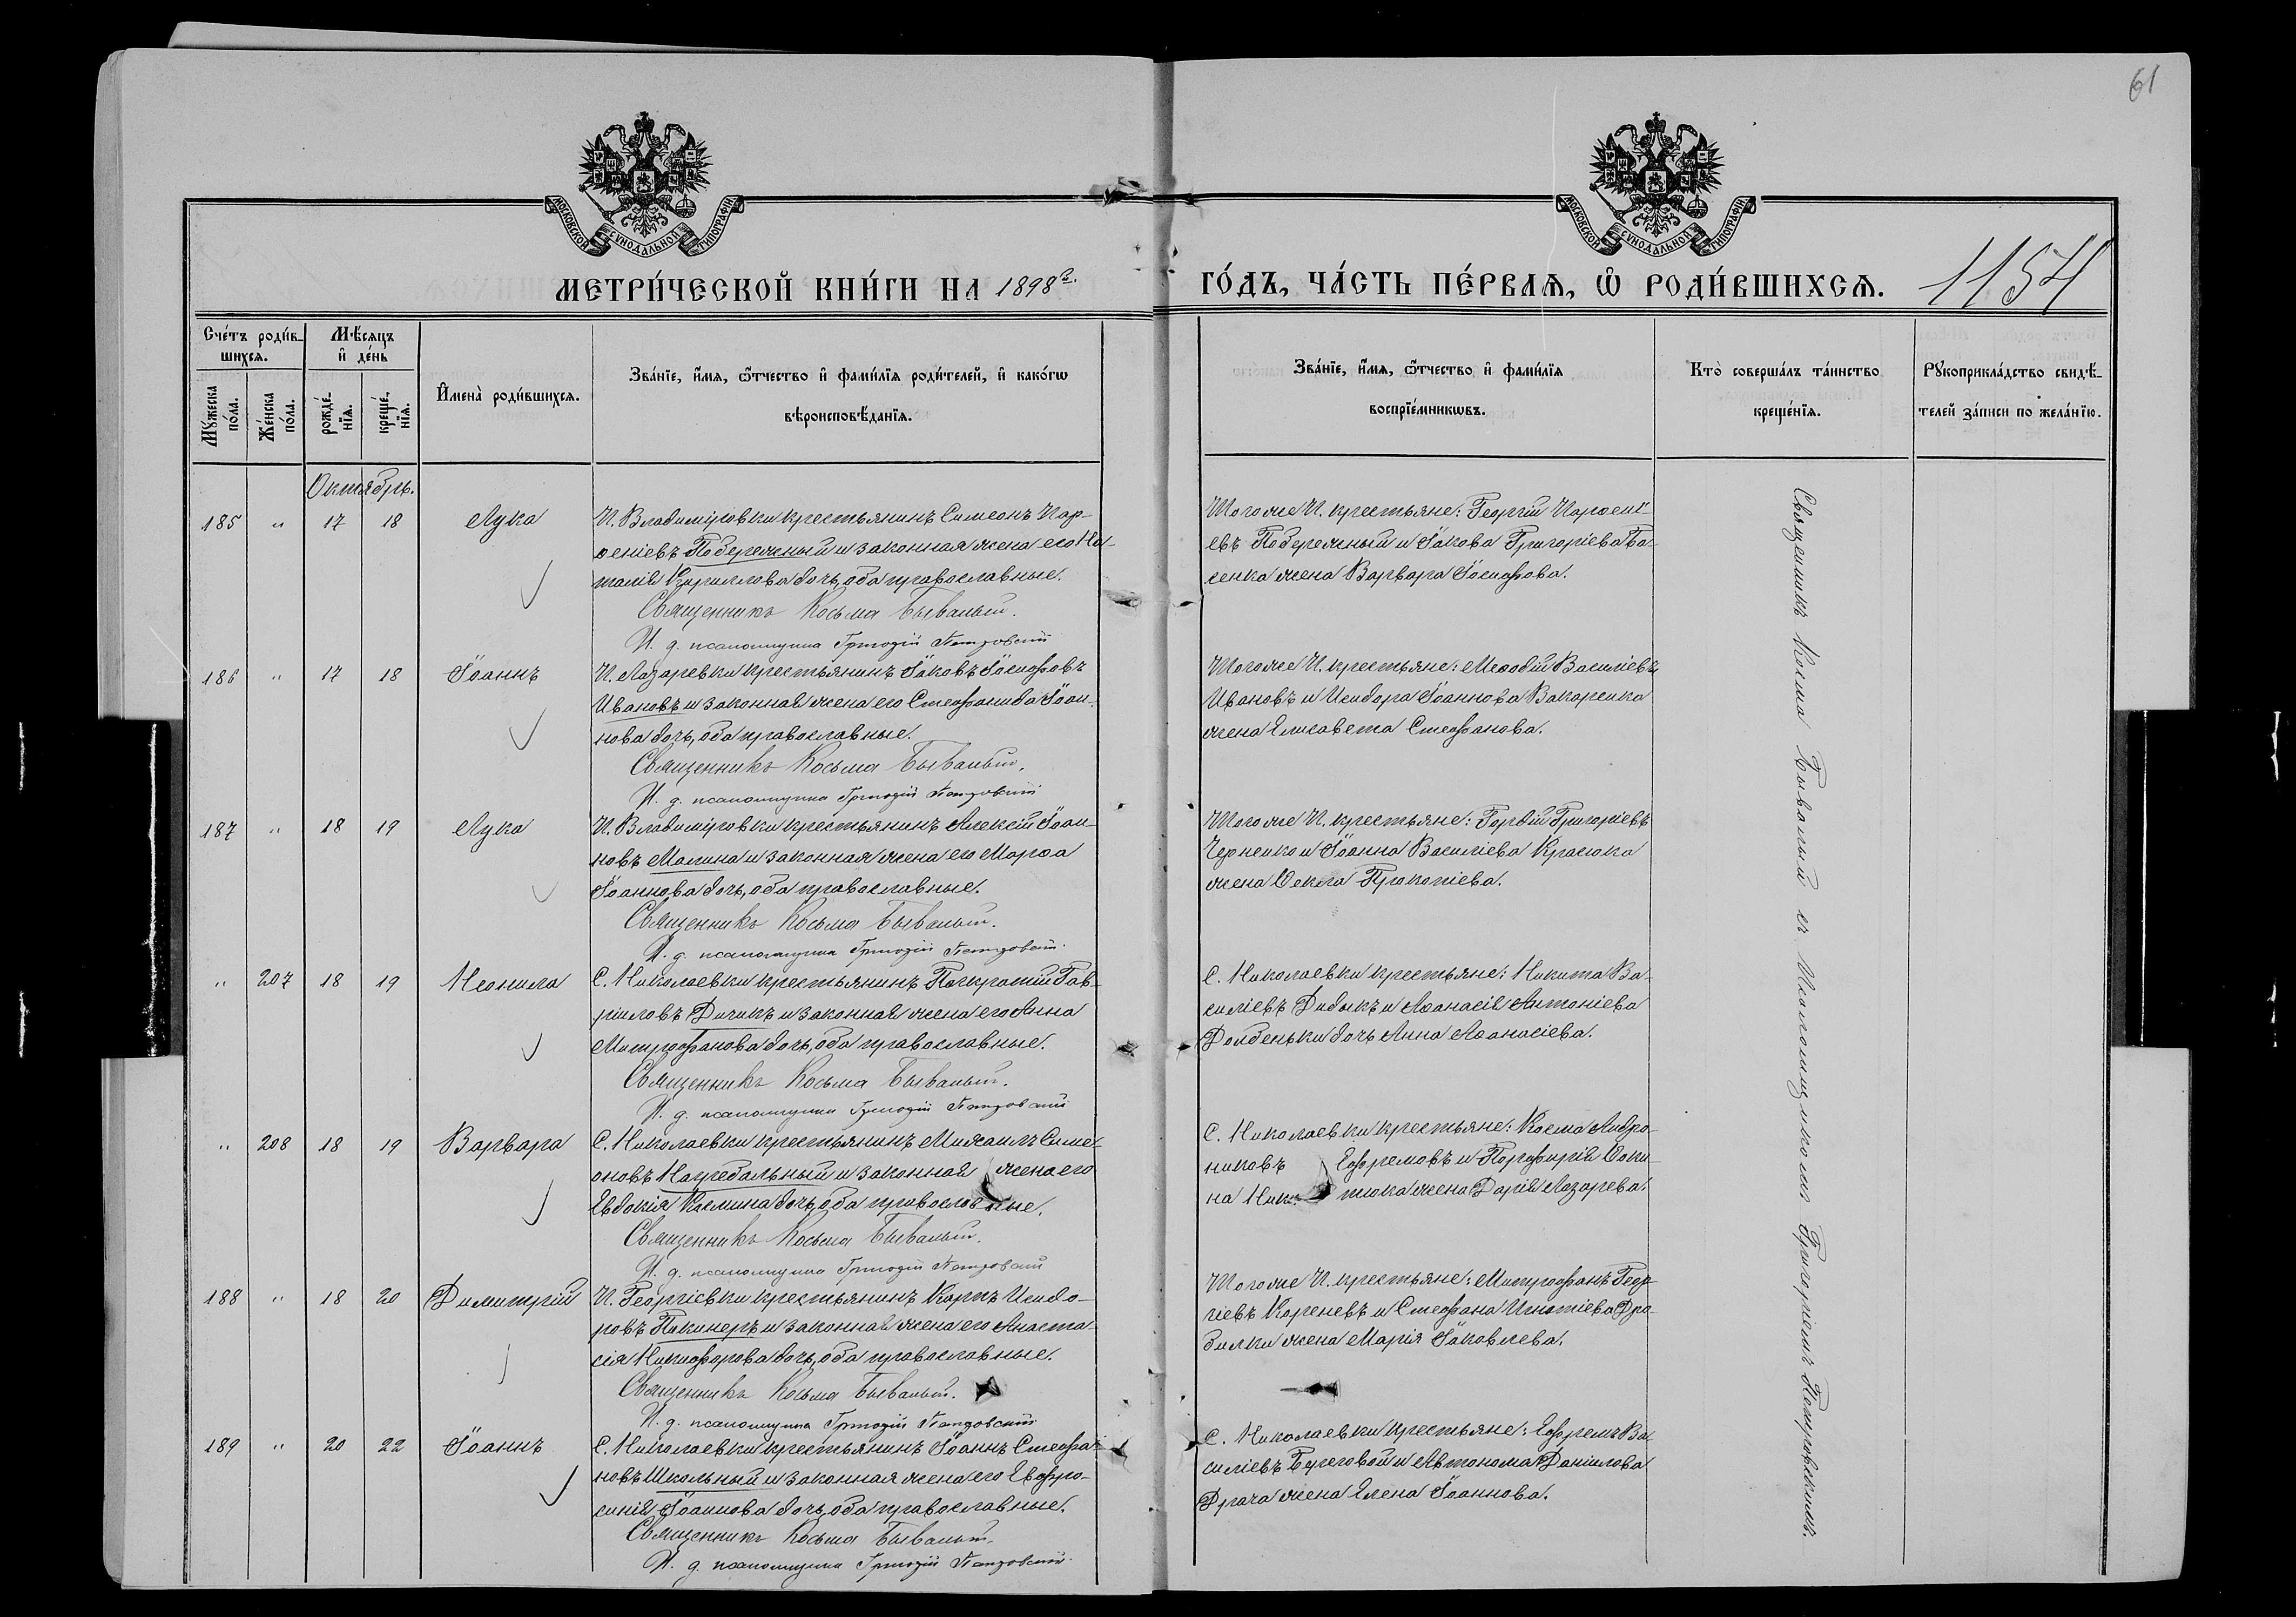 61
МОСКОВСКОЙ СѴНОДАЛЬНОЙ ТИПОГРАФІИ
МОСКОВСКОЙ СѴНОДАЛЬНОЙ ТИПОГРАФІИ
МЕТРИ́ЧЕСКОЙ КНИ́ГИ НА 1898 г.
ГО́ДЪ, ЧА́СТЬ ПЕ́РВАѦ, Ѡ҆ РОДИ́ВШИХСѦ.
1154
Сче́тъ роди́в-
шихсѧ.
Мꙋжеска по́ла.
Же́нска по́ла.
Мѣ́сѧцъ
и҆ де́нь
рожде́-
нїѧ.
креще́-
нїѧ.
И҆мена̀ роди́вшихсѧ.
Зва́нїе, и҆́мѧ, ѻ҆́тчество и҆ фами́лїѧ роди́телей, и҆ како́гѡ
вѣроисповѣ́данїѧ.
Зва́нїе, и҆́мѧ, ѻ҆́тчество и҆ фами́лїѧ
воспрїе́мникѡвъ.
Кто̀ соверша́лъ та́инство
креще́нїѧ.
Рꙋкоприкла́дство свидѣ́-
телей за́писи по жела́нїю.
Октябрь.
185 " 17 18 Лука
И. Владиміровки крестьянинъ Симеонъ Пар-
ѳеніевъ Побережный и законная жена его На-
талія Кириллова дочь, оба православные.
Священникъ Косьма Бывалый.
И. д. псаломщика Григорій Петровскій
Того же И. крестьяне: Георгій Парѳені-
евъ Побережный и Іакова Григоріева Ба-
сенка жена Варвара Іосифова.
186 " 17 18 Іоаннъ
И. Лазаревки крестьянинъ Іаковъ Іосифовъ
Ивановъ и законная жена его Стефанида Іоан-
нова дочь, оба православные.
Священникъ Косьма Бывалый.
И. д. псаломщика Григорій Петровскій
Того же И. крестьяне: Меѳодій Василіевъ
Ивановъ и Исидора Іоаннова Вакаренка
жена Елисавета Стефанова.
187 " 18 19 Лука
И. Владиміровки крестьянинъ Алексій Іоан-
новъ Малина и законная жена его Марѳа
Іоаннова дочь, оба православные.
Священникъ Косьма Бывалый.
И. д. псаломщика Григорій Петровскій.
Того же И. крестьяне: Гордій Григоріевъ
Черненко и Іоанна Василіева Красюка
жена Ѳекла Прокопіева.
" 207 18 19 Неонила
С. Николаевки крестьянинъ Панкратій Гав-
ріиловъ Дичикъ и законная жена его Анна
Митрофанова дочь, оба православные.
Священникъ Косьма Бывалый.
И. д. псаломщика Григорій Петровскій
С. Николаевки крестьяне: Никита Ва-
силіевъ Дидыкъ и Аѳанасія Антоніева
Долбеньки дочь Анна Аѳанасіева.
" 208 18 19 Варвара
С. Николаевки крестьянинъ Михаилъ Симе-
оновъ Нагребальный и законная жена его
Евдокія Косьмина дочь, оба православные.
Священникъ Косьма Бывалый.
И. д. псаломщика Григорій Петровскій
С. Николаевки крестьяне: Косма Андро-
никовъ Ефремовъ и Порфирія Фоки-
на Ники тюка жена Дарія Лазарева.
188 " 18 20 Димитрій
И. Георгіевки крестьянинъ Карпъ Исидо-
ровъ Пикинеръ и законная жена его Анаста-
сія Никифорова дочь, оба православные.
Священникъ Косьма Бывалый.
И. д. псаломщика Григорій Петровскій
Того же И. крестьяне: Митрофанъ Геор-
гіевъ Кореневъ и Стефана Игнатіева Дра-
билки жена Марія Іаковлева.
189 " 20 22 Іоаннъ
С. Николаевки крестьянинъ Іоаннъ Стефа-
новъ Школьный и законная жена его Евфро-
синія Іоаннова дочь, оба православные.
Священникъ Косьма Бывалый.
И. д. псаломщика Григорій Петровскій.
С. Николаевки крестьяне: Ефремъ Ва-
силіевъ Береговой и Автонома Даніилова
Драча жена Елена Іоаннова.
Священникъ Косма Бывалый съ Псаломщикомъ Григоріемъ Петровскимъ.